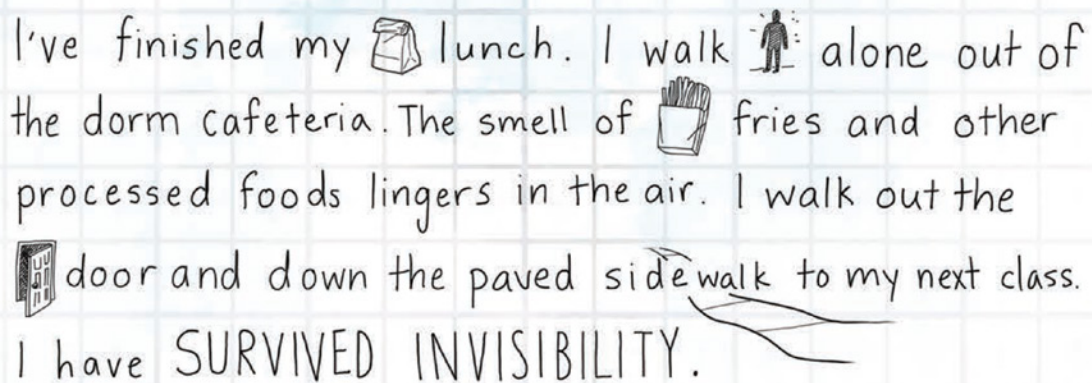 I've finished my lunch. I walk alone out of
the dorm cafeteria. The smell of fries and other
processed foods lingers in the air. I walk out the
door and down the paved sidewalk to my next class.
I have SURVIVED INVISIBILITY.